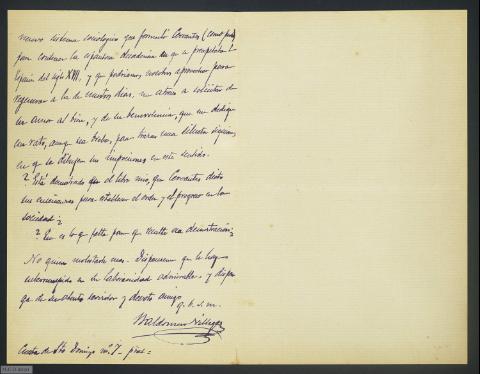 nuevo sistema sociológico que formuló Cervantes (como pudo)
para contener la espantosa decadencia en que se precipitaba la
España del siglo XVII, y que podríamos nosotros aprovechar para
regenerar a la de nuestros días, me atrevo a solicitar de
su amor al bien, y de su benevolencia, que me dedique
un rato, aunque sea breve, para trazar una silueta siquiera
en que se dibujen sus impresiones en este sentido.
? Está demostrado que el libro mío, que Cervantes dictó
sus enseñanzas para establecer el orden y el progreso en la
sociedad?
? Qué es lo que falta para que resulte esa demostración?
No quiero molestarle mas. Dispénseme que le haya
interrumpido en su laboriosidad admirable, y dispon
ga de su atento servidor y devoto amigo
q. b. s. m.
Baldomero Villegas
Cuesta de Sto Domingo nº 7 - pral =